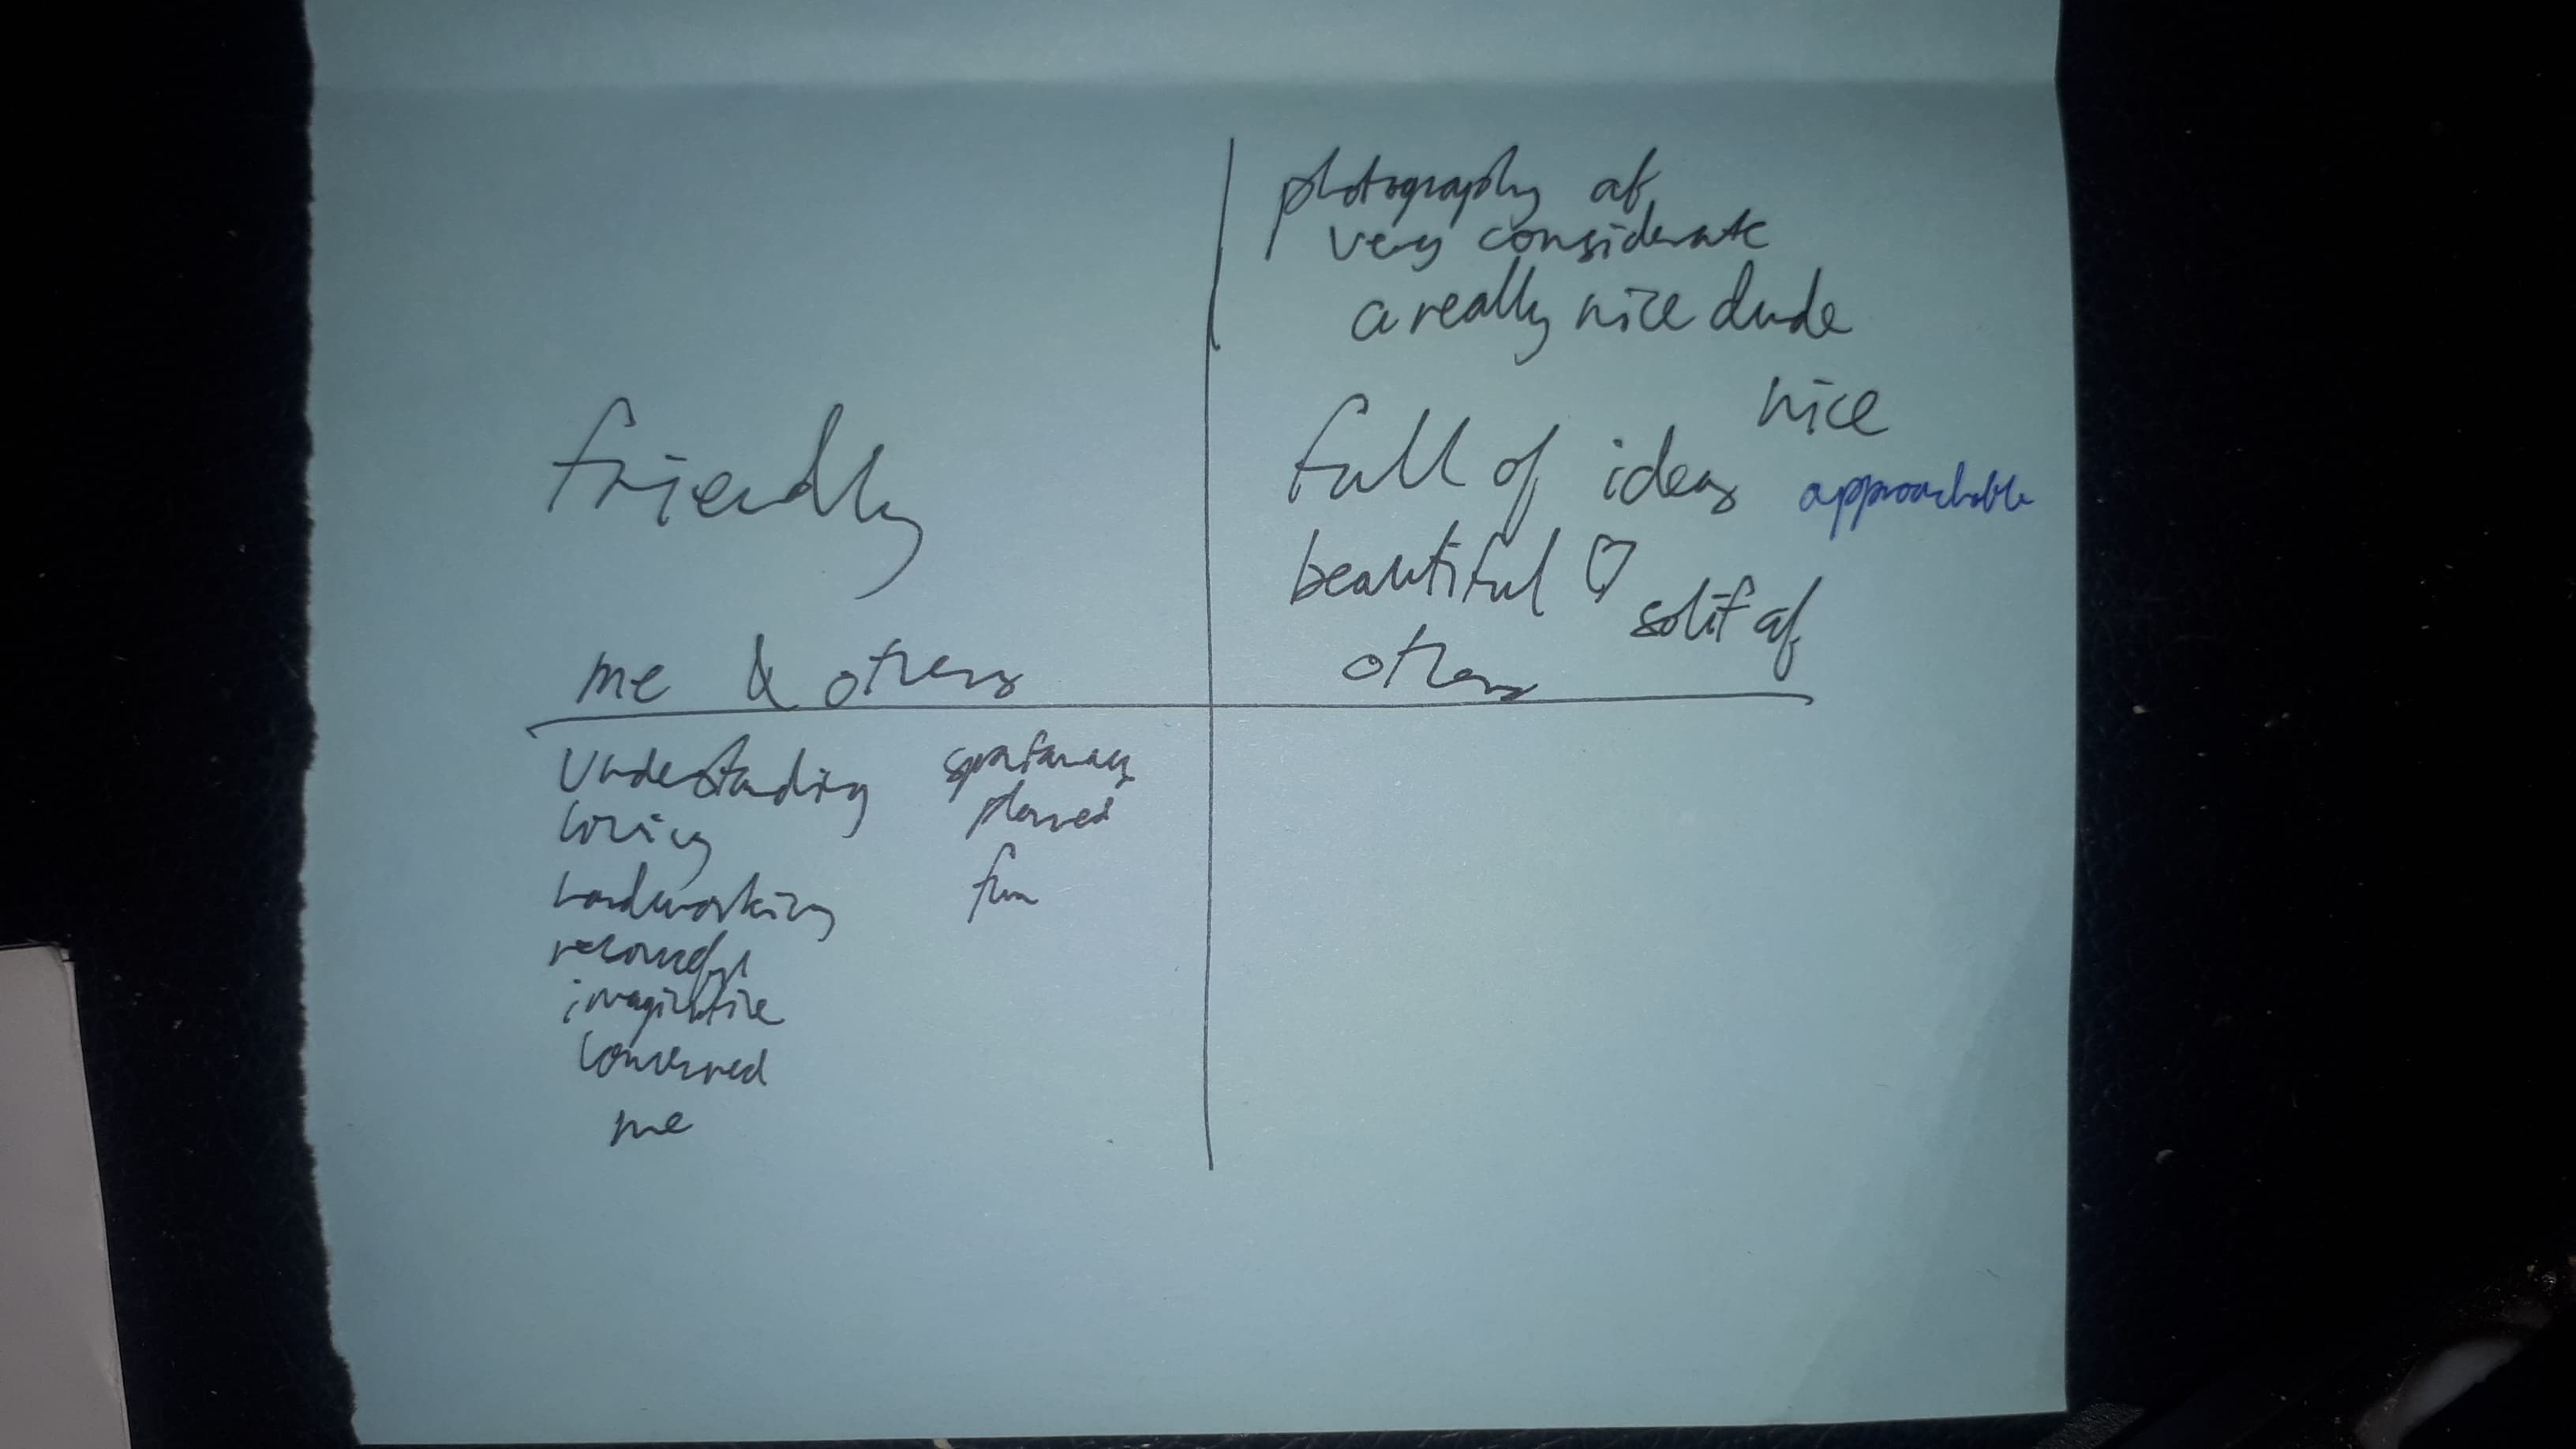 friendly
me & others
photography af
very considerate
a really nice dude
nice
full of ideas
approachable
beautiful ♡
solit af
others
Understanding
loving
hardworking
resourceful
imaginative
Concerned
me
planned
fun